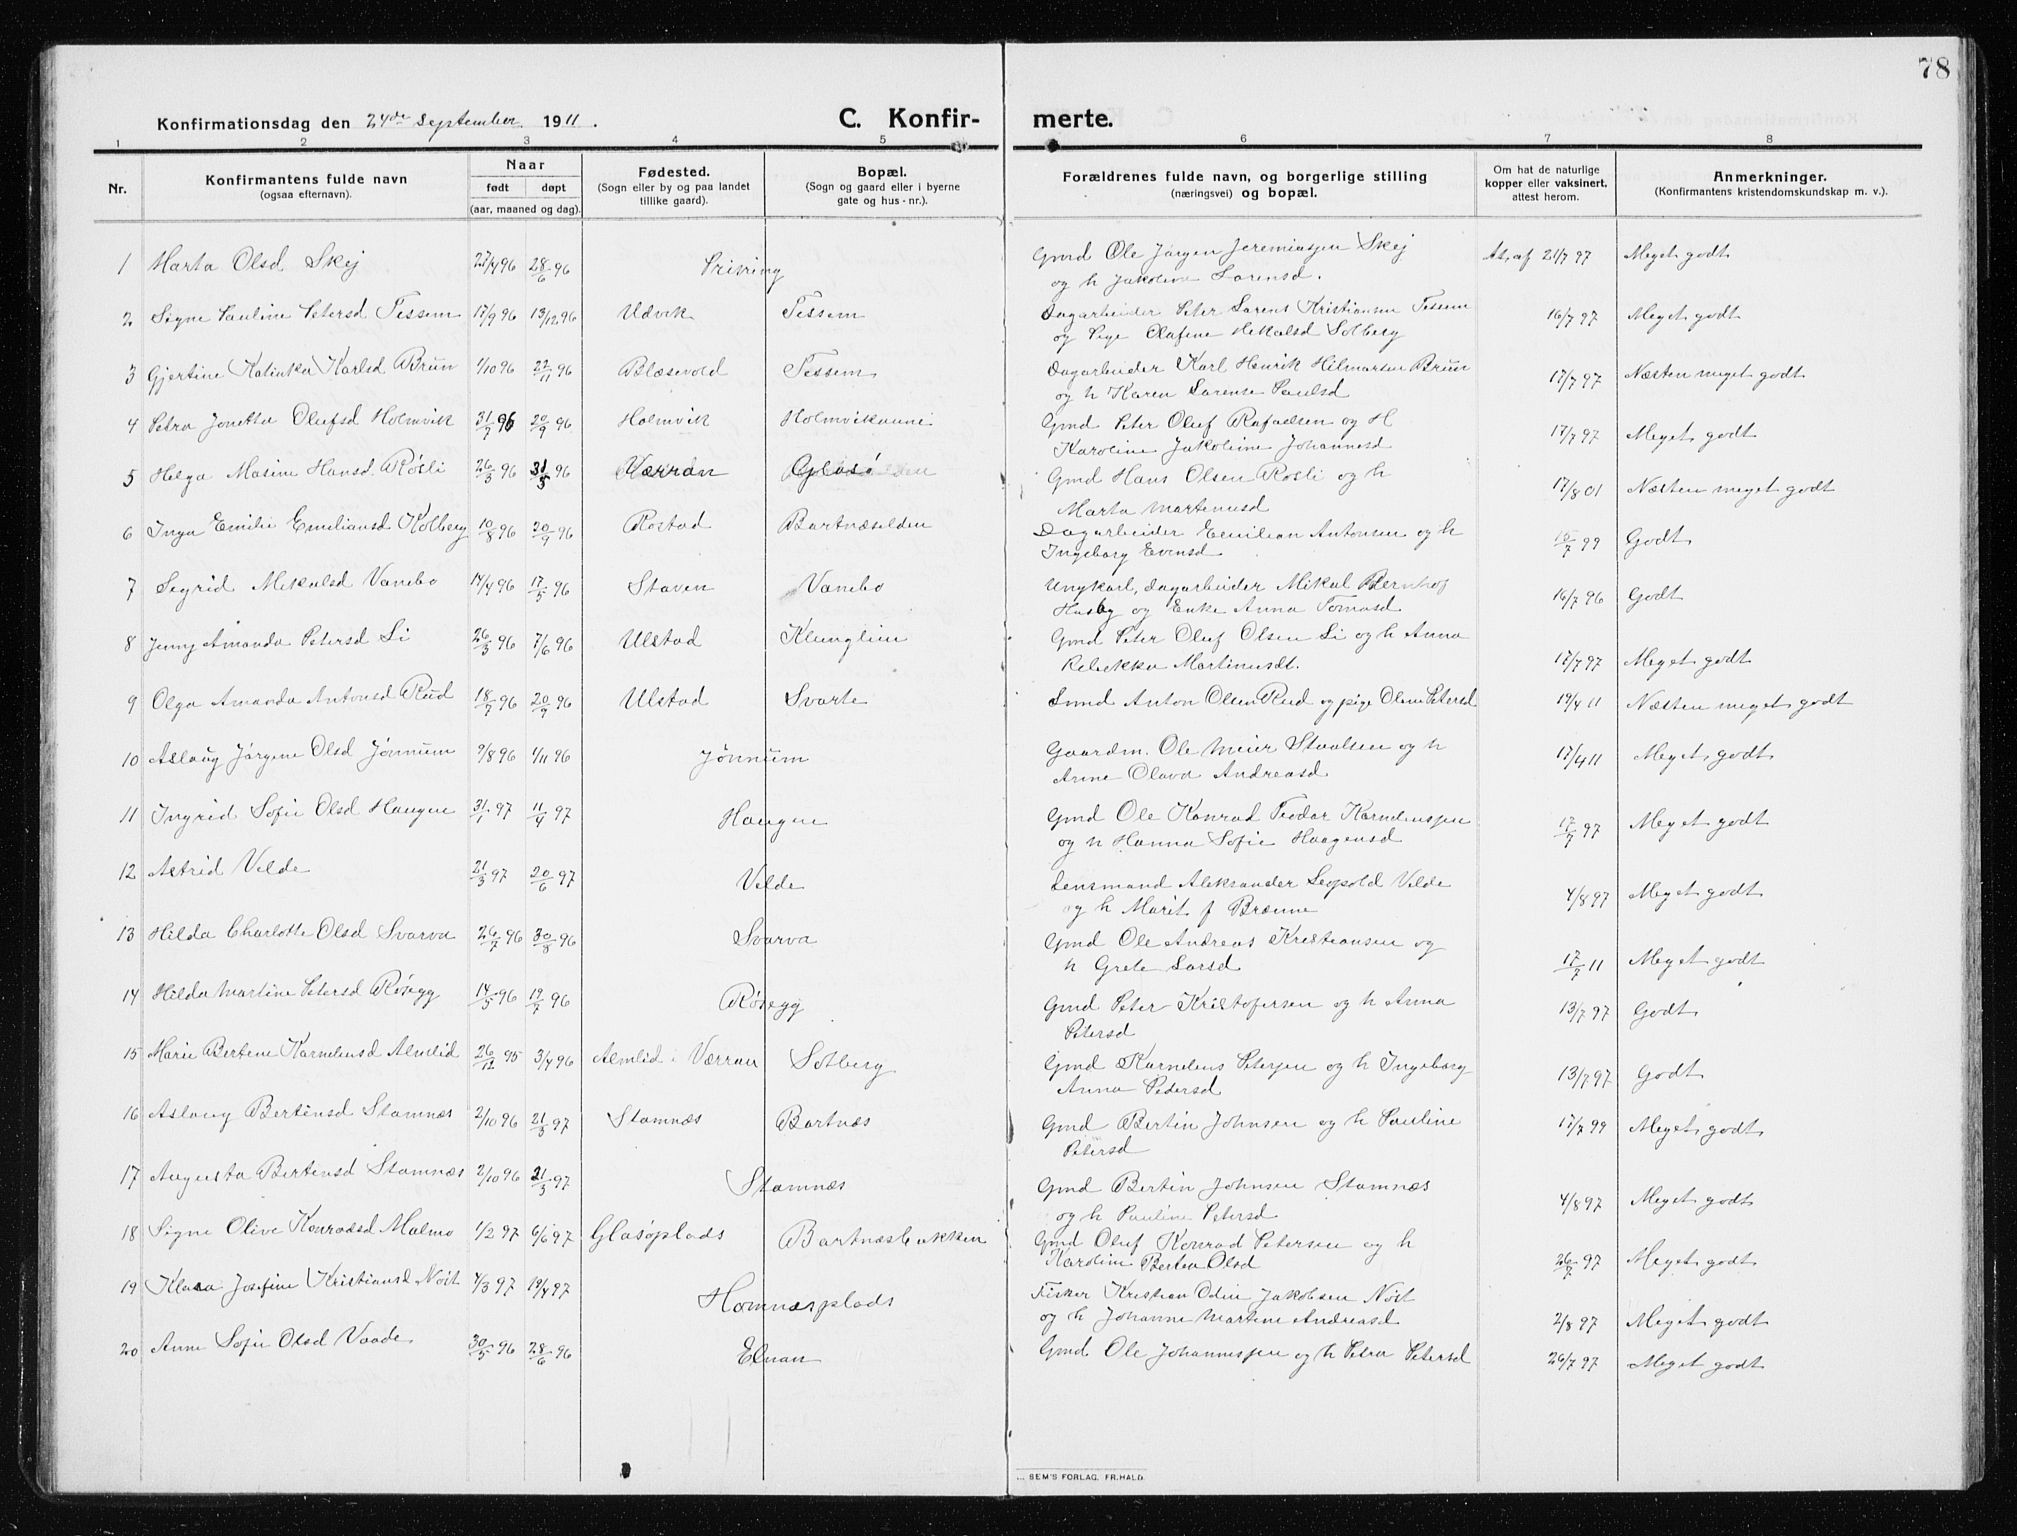 78
Konfirmationsdag den 24de September 1911.
C. Konfir-
merte.
1 2 3 4 5 6 7 8
Nr.
Konfirmantens fulde navn
(ogsaa efternavn).
Naar
født døpt
(aar, maaned og dag).
Fødested.
(Sogn eller by og paa landet
tillike gaard).
Bopæl.
(Sogn og gaard eller i byerne
gate og hus-nr.).
Forældrenes fulde navn, og borgerlige stilling
(næringsvei) og bopæl.
Om hat de naturlige
kopper eller vaksinert,
attest herom.
Anmerkninger.
(Konfirmantens kristendomskundskap m. v.).
1 Marta Olsd Skej 27/4 96 28/6 96 Gmd Ole Jørgen Jeremiassen Skej At. af 21/7 97 Meget godt
og h Jakoline Sorensd.
2 Signe Pauline Petersd Tessem 17/9 96 13/12 96 Udvik Tessem Dagarbeider Peter Sorens Kristiansen Tessem 16/7 97 Meget godt
og Pige Olafine Mikalsd Solberg
3 Gjertine Katinka Karlsd Brun 1/10 96 22/11 96 Blæsevold Tessem Dagarbeider Karl Henrik Hilmarsen Brun 17/7 97 Næsten meget godt
og h Karen Sorense Paulsd
4 Petra Jonetta Olufsd Holmvik 31/7 96 20/9 96 Holmvik Holmvikaune Gmd Peter Oluf Rafaelsen og H 17/7 97 Meget godt
Karoline Jakobine Johannesd
5 Helga Masine Hansd. Røsli 26/3 96 31/5 96 Værran Gløsø Gmd Hans Olsen Rosli og h 17/8 01 Næsten meget godt
Marta Martenusd
6 Inga Emilie Emiliansd Kolberg 10/8 96 20/9 96 Rostad Bartnæselden Dagarbeider Emilian Antonsen og h 10/7 99 Godt
Ingeborg Evensd
7 Sigrid Mikalsd Vanebo 14/4 96 17/5 96 Staven Vanebo Ungkarl, dagarbeider Mikal Bernhof 16/7 96 Godt
Husby og Enke Anna Tomasd
8 Jenny Amanda Petersd Li 26/3 96 7/6 96 Ulstad Klunglien Gmd Peter Oluf Olsen Li og h Anna 17/7 97 Meget godt
Rebekka Martinusdt.
9 Olga Amanda Antonsd Rud 18/7 96 20/9 96 Ulstad Svarte Anton Olsen Rud og pige Oline Petersd 19/4 11 Næsten meget godt
10 Aslaug Jørgine Olsd Jønnum 9/8 96 1/11 96 Jønnum Gaardm. Ole Meier Staalsen og h 17/4 11 Meget godt
Anne Olava Andreasd
11 Ingrid Sofie Olsd Haugen 31/1 97 11/4 97 Haugen Gmd Ole Konrad Teodor Karneliussen 17/7 97 Meget godt
og h Hanna Sofie Haagensd
12 Astrid Velde 21/3 97 20/6 97 Velde Lensmand Aleksander Leopold Velde 4/8 97 Meget godt
og h Marit f Brænne
13 Hilda Charlotte Olsd Svarva 26/7 96 30/8 96 Svarva Gmd Ole Andreas Kristiansen og 17/7 11 Meget godt
h Grete Larsd
14 Hilda Martine Petersd Røsegg 14/5 96 19/7 96 Røsegg Gmd Peter Kristofersen og h Anna 13/7 97 Godt
Petersd
15 Marie Bertine Karneliusd Almlid 26/12 95 3/4 96 Almlid i Værran Solberg Gmd Karnelius Petersen og h Ingeborg 13/7 97 Godt
Anna Pedersd
16 Aslaug Bertinsd Stamnæs 2/10 96 21/3 97 Stamnæs Bartnæs Gmd Bertin Johnsen og h Pauline 17/7 99 Meget godt
Petersd
17 Augusta Bertinsd Stamnæs 2/10 96 21/3 97 Stamnæs Gmd Bertin Johnsen Stamnæs 4/8 97 Meget godt
og h Pauline Petersd
18 Signe Olive Konradsd Malmo 1/2 97 6/6 97 Glasøplads Bartnæsbakken Gmd Oluf Konrad Petersen og h 26/7 97 Meget godt
Karoline Bertea Olsd
19 Klara Josefine Kristiansd Nøst 4/3 97 19/4 97 Homnæsplads Fisker Kristian Odin Jakobsen Nøst 2/8 97 Meget godt
og h Johanne Martine Andreasd
20 Anne Sofie Olsd Vaade 30/5 96 28/6 96 Elnan Gmd Ole Johannessen og h Petra Petersd 26/7 97 Meget godt
SEM'S FORLAG, FR.HALD.